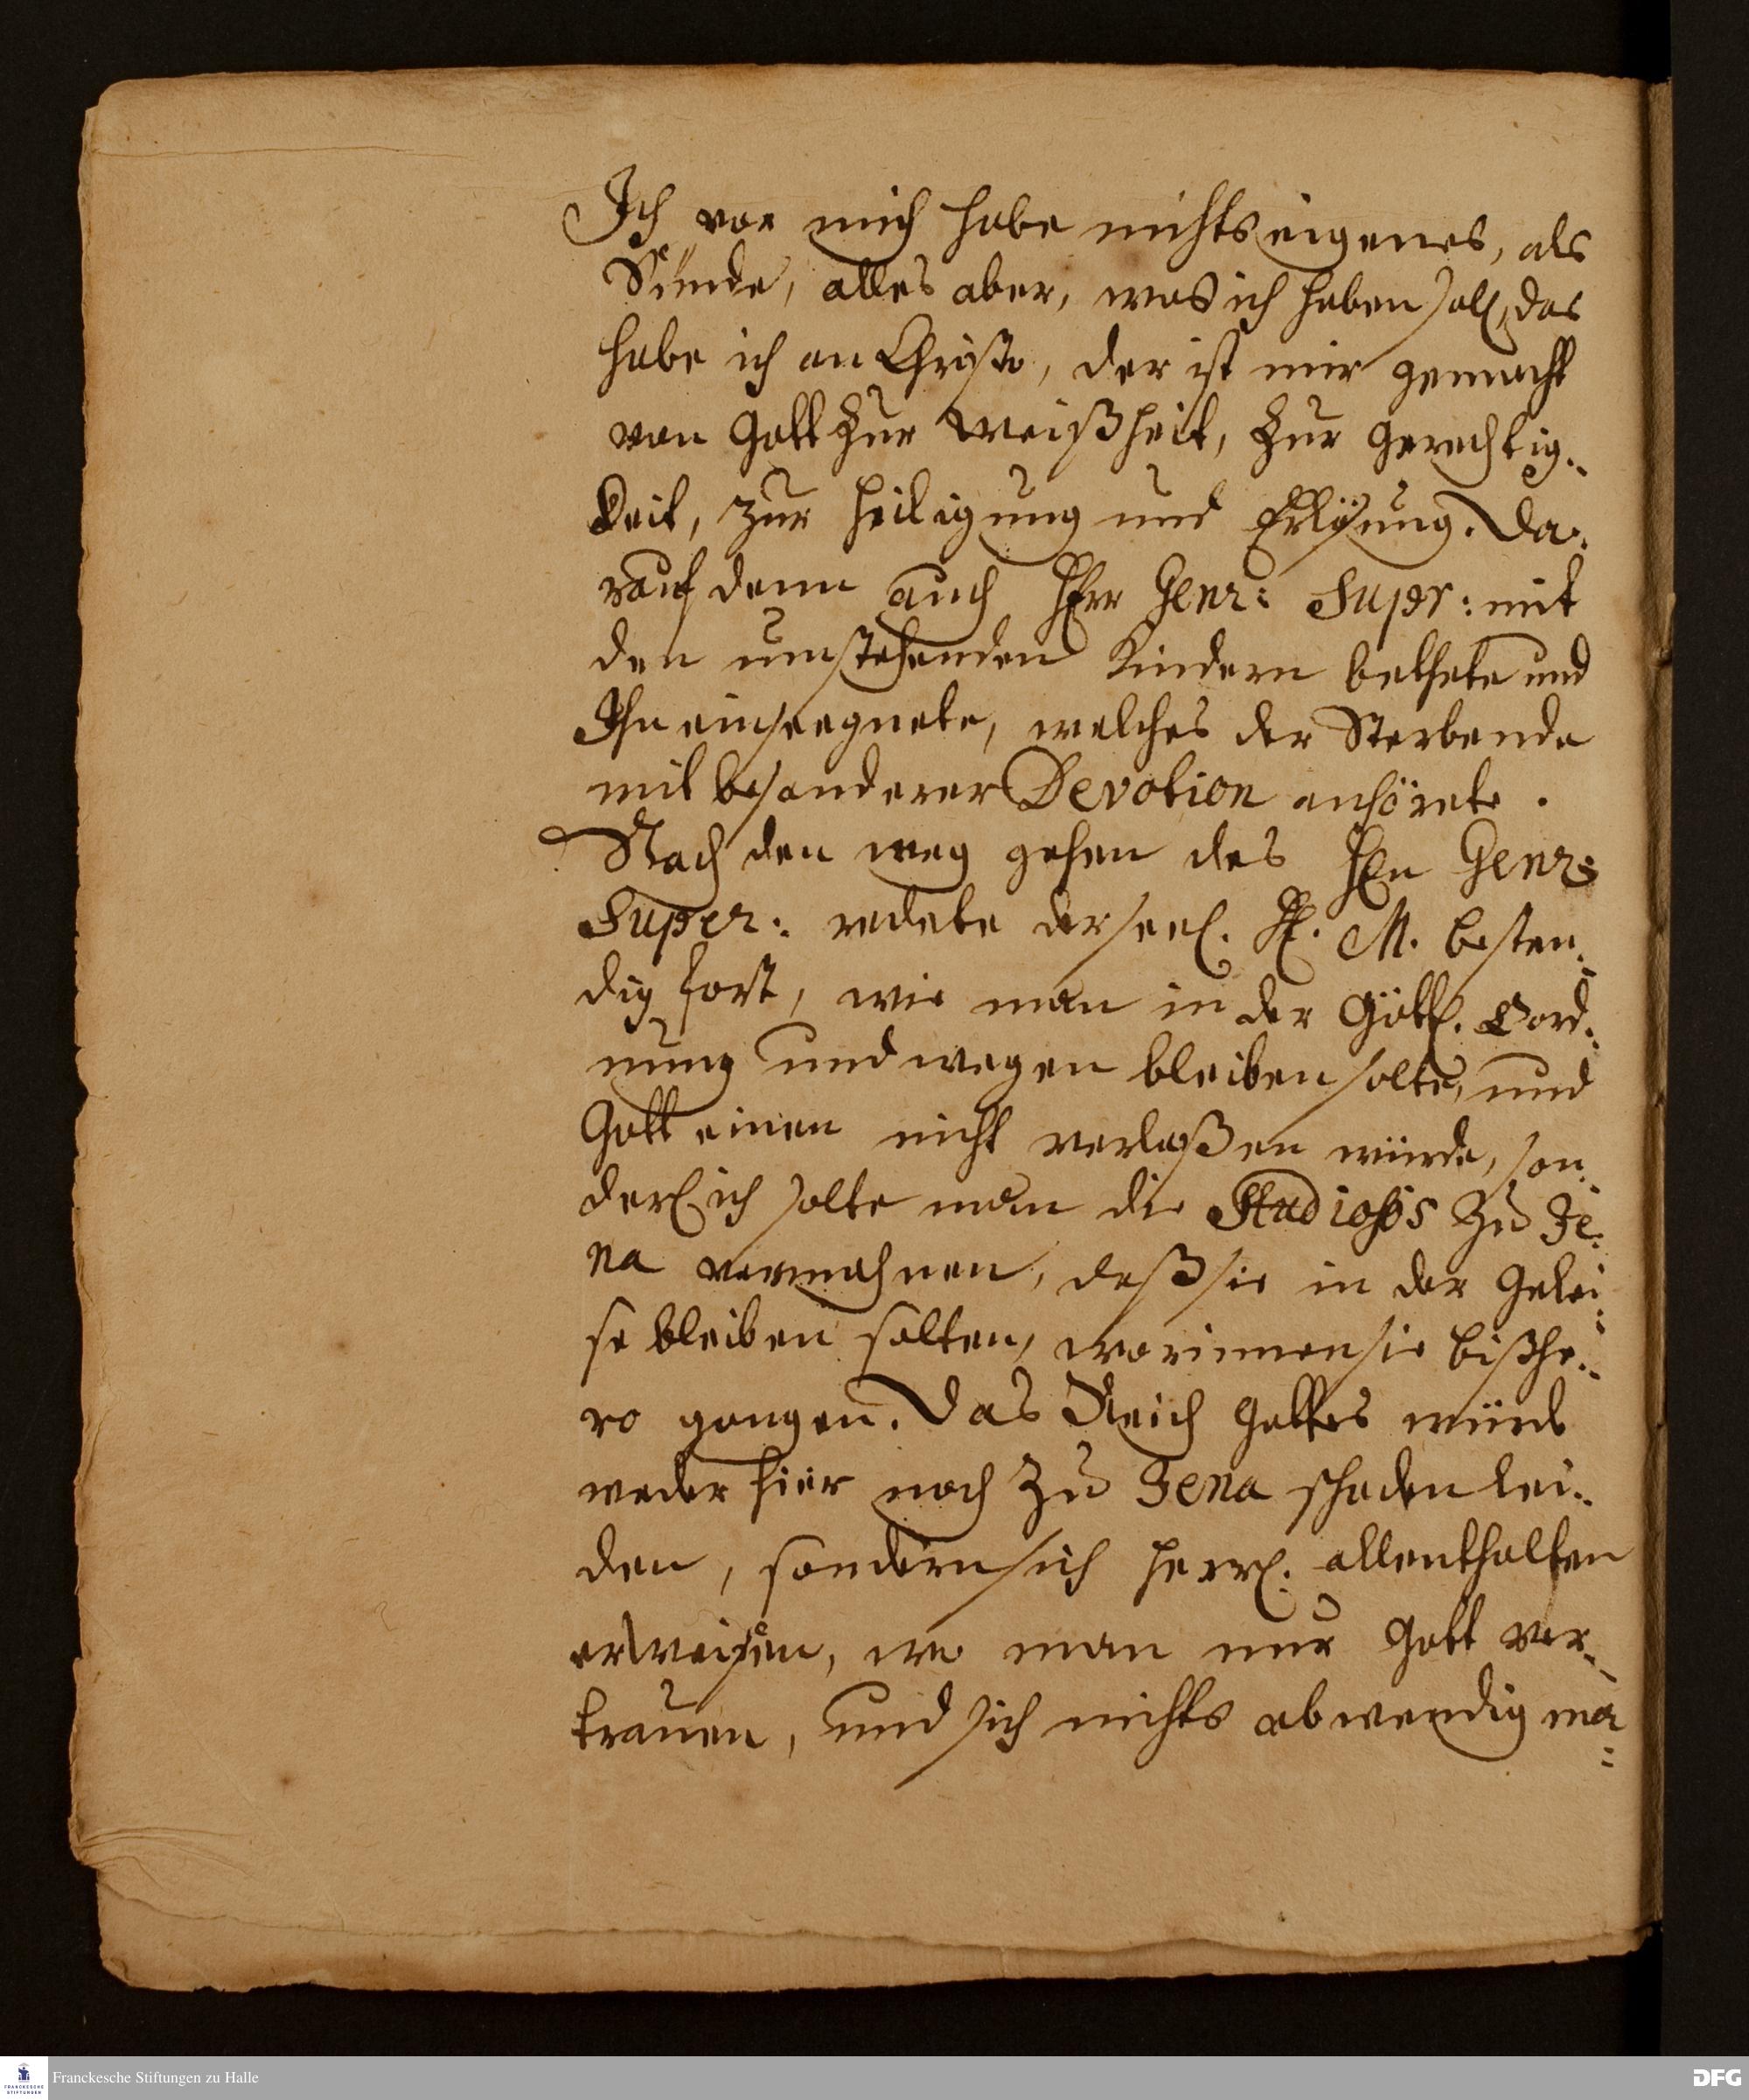 Ich vor mich habe nichts eigenes, als
Sünde, alles aber, was ich haben soll, das
habe ich an Christo, der ist mir gemacht
von Gott Zur Weißheit, Zur Gerechtig¬
keit, zur Heiligung und Erlösung. Da¬
rauf denn auch Herr Genr: Super: mit
den umstehenden Kindern bethete und
Ihn einseegnete, welches der Sterbende
mit besonderer Devotion anhörete.
Nach den weg gehen des HEn Genr:
Super: redete der seel. HE. M. besten¬
dig fort, wie man in der Göttl. Oord¬
nung und wegen bleiben solte, und
Gott einen nicht verlaßen würde, son¬
derlich solte man die Studiosos Zu Je¬
na vermahnen, daß sie in der Gelei¬
se bleiben solten, worinnen sie bißhe¬
ro gangen. Das Reich Gottes würde
weder hier noch Zu Jena schaden lei¬
den, sondern sich herrl. allenthalben
erweisen, wo man nur Gott ver¬
trauen, und sich nichts abwendig ma¬
Franckesche Stiftungen zu Halle
FRANCKESCHE
STIFTUNGEN
DFG